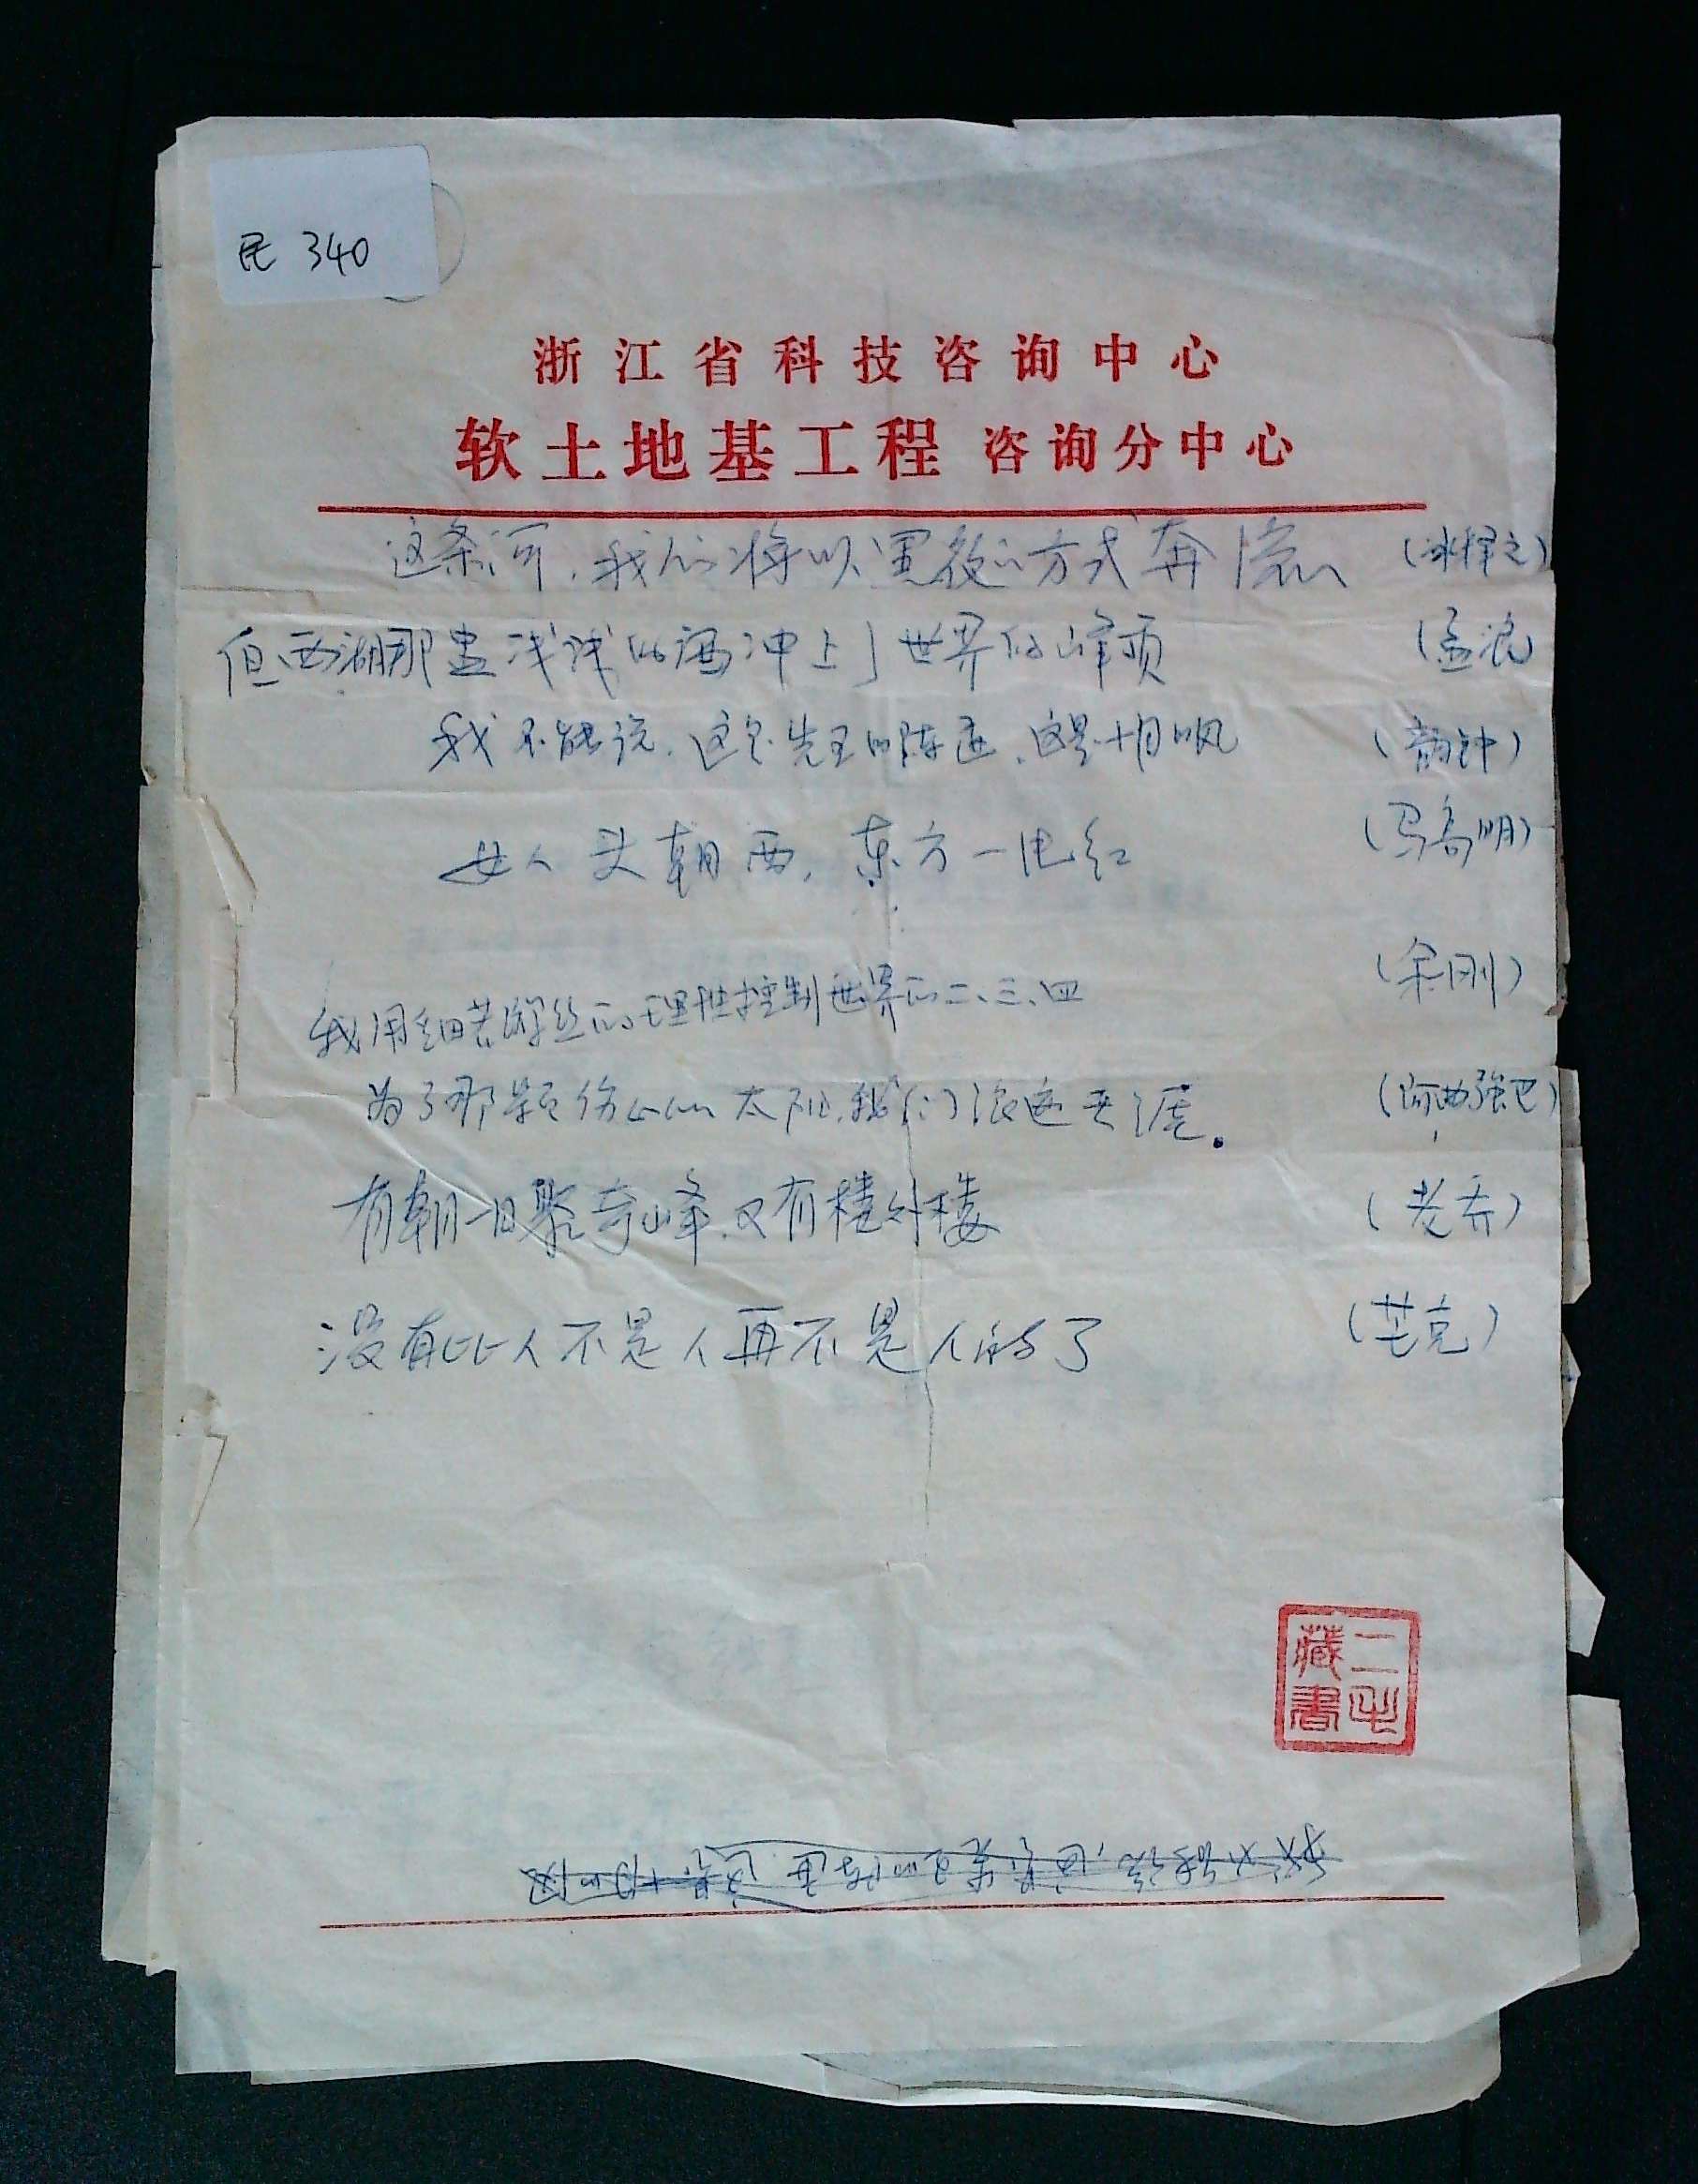 民 340
浙江省科技咨询中心
软土地基工程 咨询分中心
这条河，我们将以 的方式奔流 (冰释之)
但西湖那 浅浅的酒冲上了世界的峰顶 (孟浪)
我不能说，这是先王的陈迹，这是十月的风 (韵钟)
女人头朝西，东方一片红 (马高明)
(余刚)
我用细若游丝的理性控制世界的二、三、四
为了那颗伤心的太阳，我们浪迹天涯。 (阿曲强巴)
有朝一日聚奇峰，又有楼外楼 (老乔)
没有比人不是人再不是人的了 (芒克)
二毛藏書